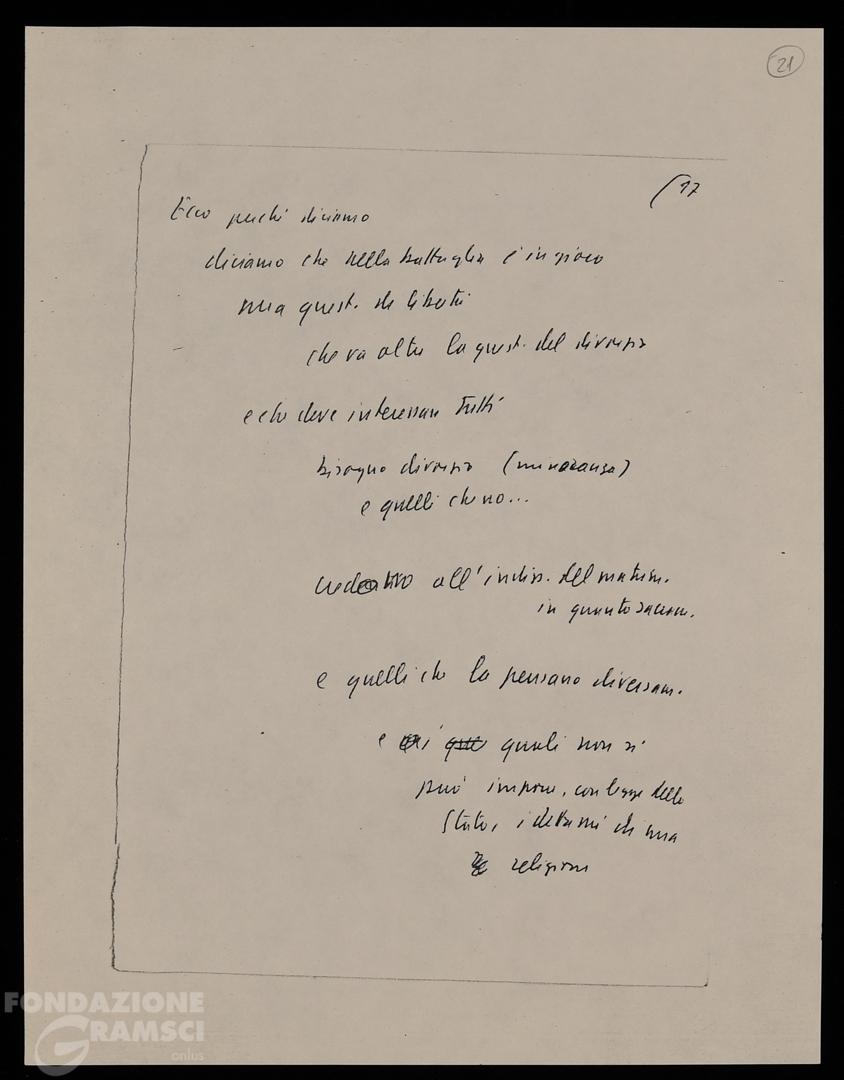 21
17
Ecco perché diciamo
diciamo che nella battaglia è in gioco
una quest. di libertà
che va oltre la quest. del divorzio
e che deve interessare tutti
bisogno divorzio (minoranza)
e quelli che no...
credono all'indiss. del matrim.
in quanto sacram.
e quelli che la pensano diversam.
e ai quali non si
può imporre, con legge dello
Stato, i dettami di una
religione
FONDAZIONE
GRAMSCI
onlus